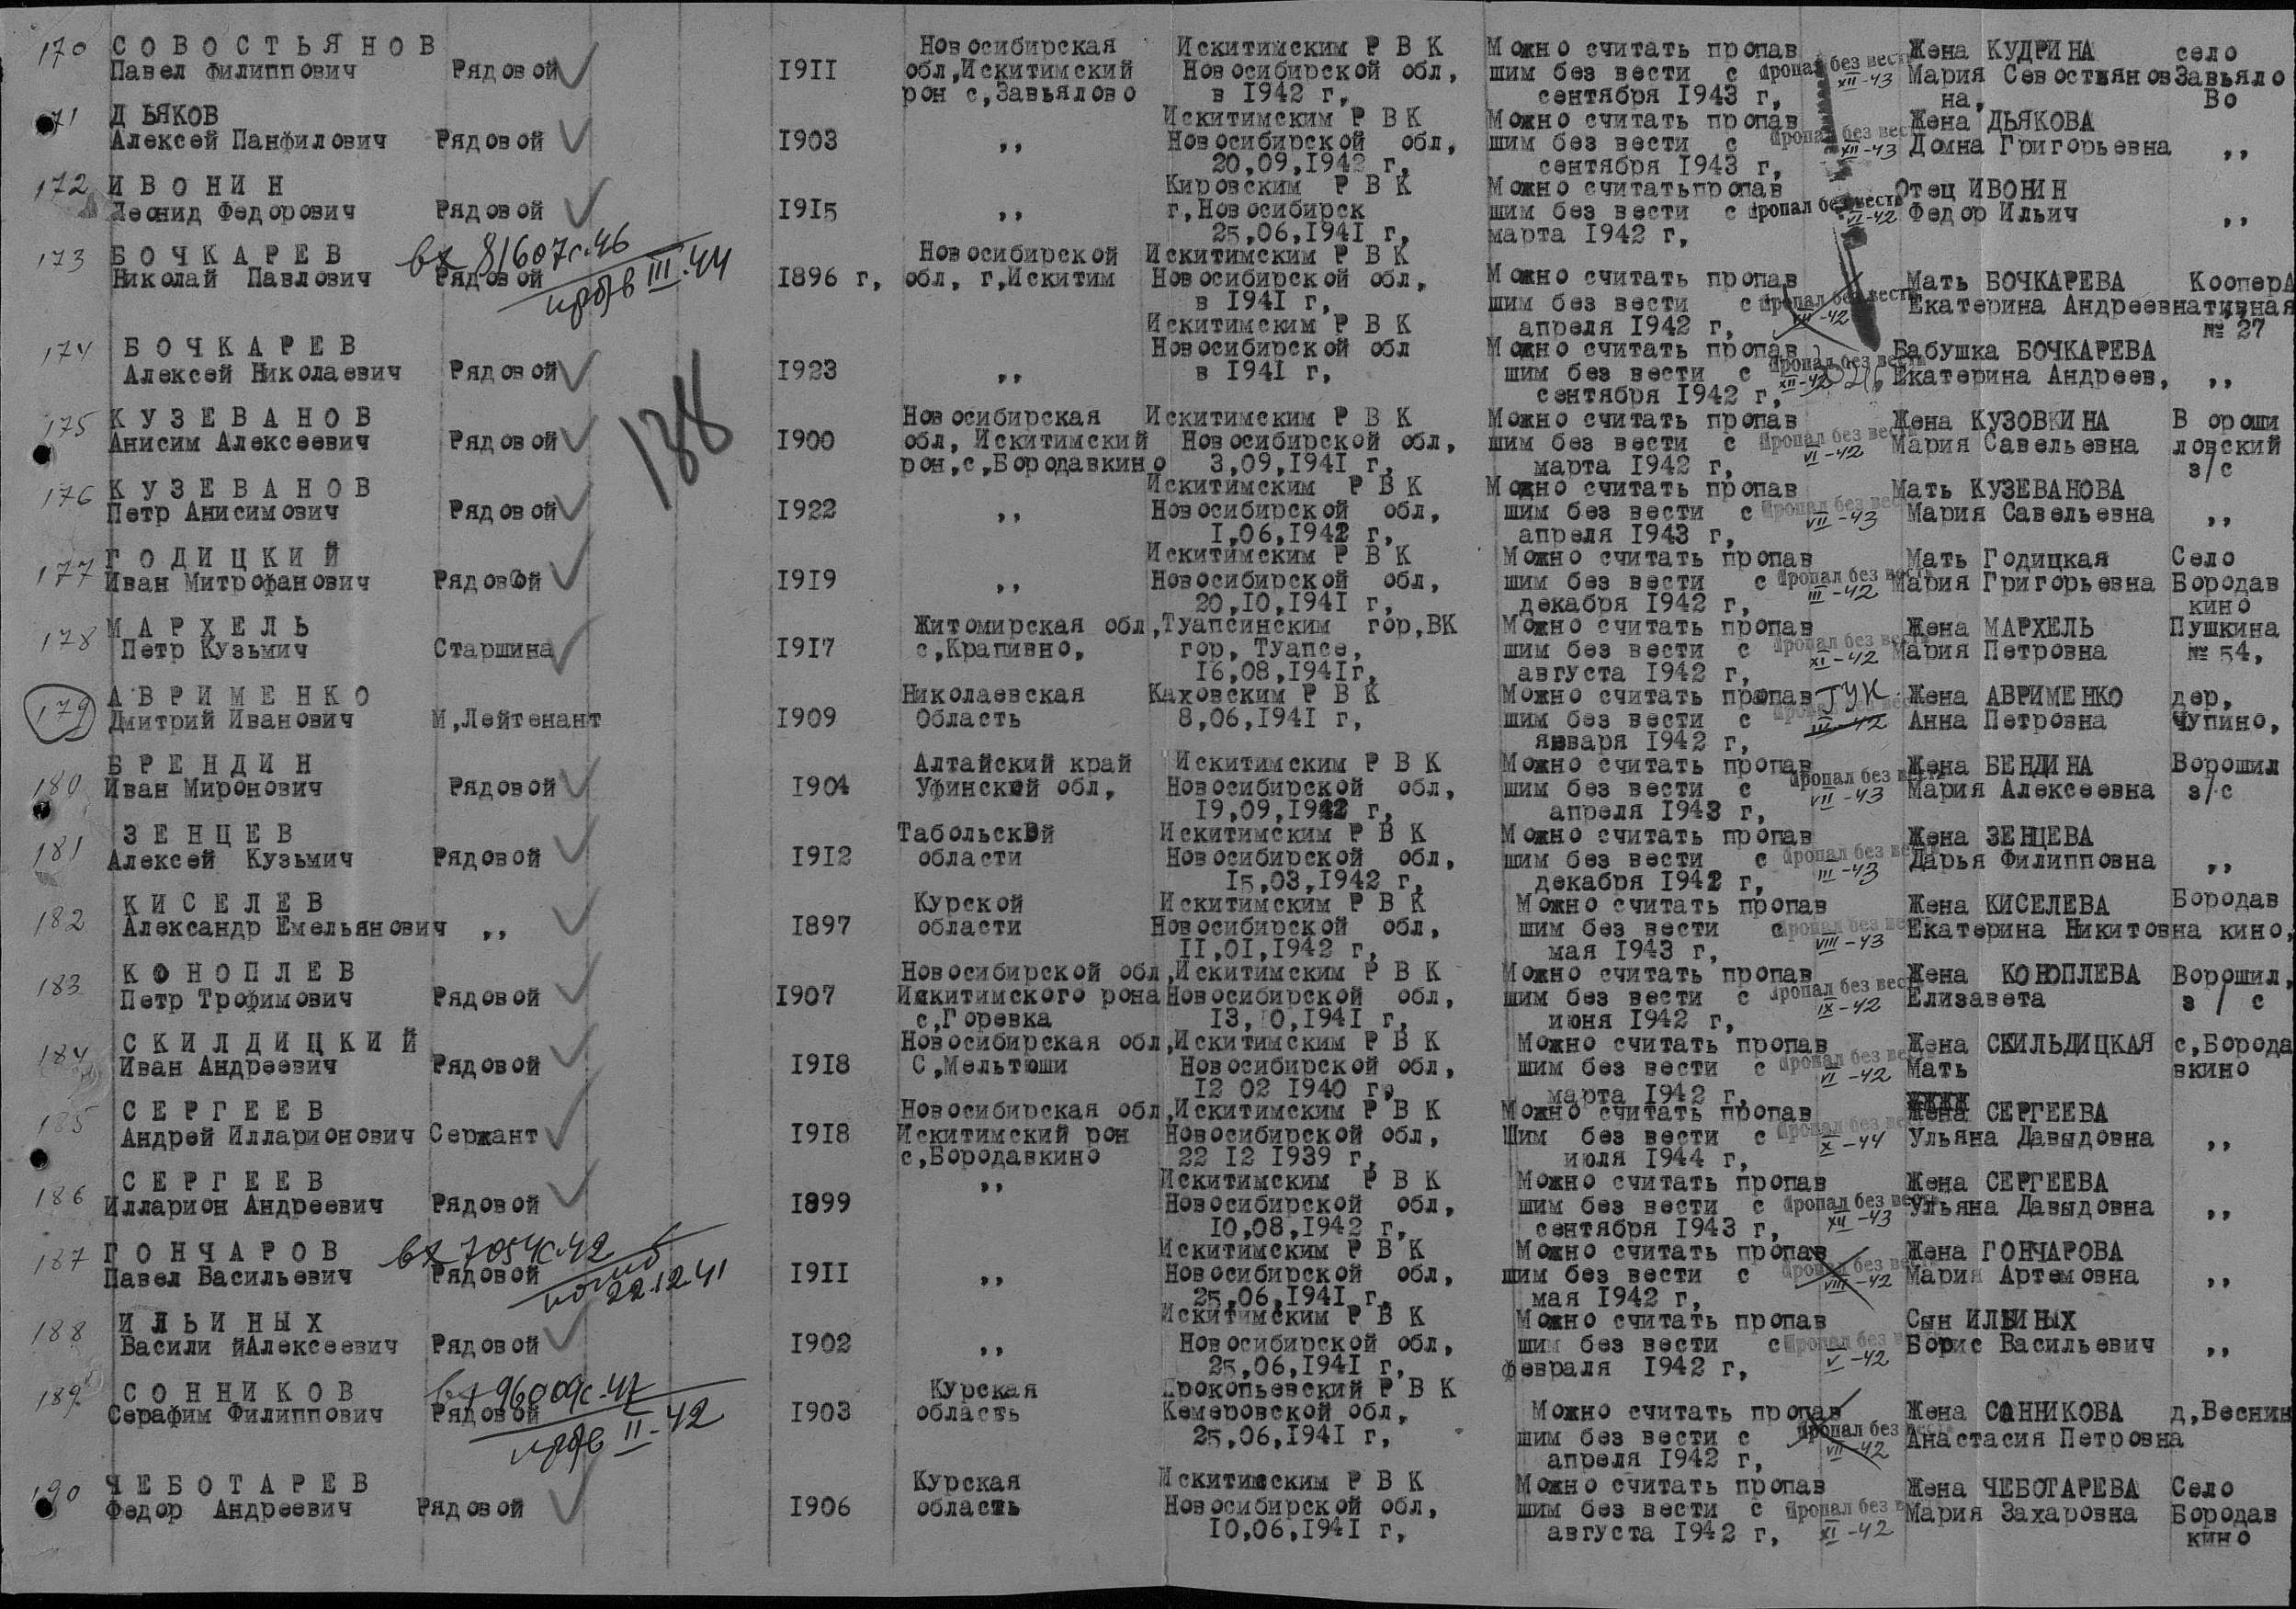 170 СОВОСТЬЯНОВ Новосибирская Искитимским РВК Можно считать пропав Жена КУДРИНА село
Павел Филиппович Рядовой 1911 обл,Искитимский Новосибирской обл, шим без вести с Пропал без вести XII-43 Мария Севостьянов Завьяло
рон с,Завьялово в 1942 г, сентября 1943 г, на, Во
71 ДЬЯКОВ Искитимским РВК Можно считать пропав Жена ДЬЯКОВА
Алексей Панфилович Рядовой 1903 ,, Новосибирской обл, шим без вести с Пропал без вести XII-43 Домна Григорьевна ,,
20,09,1942 г, сентября 1943 г,
172 ИВОНИН Кировским РВК Можно считатьпропав Отец ИВОНИН
Леонид Федорович Рядовой 1915 ,, г,Новосибирск шим без вести с Пропал без вести VI-42 Федор Ильич ,,
25,06,1941 г, марта 1942 г,
173 БОЧКАРЕВ вх 81607с-46 Новосибирской Искитимским РВК
Николай Павлович Рядовой III-44 1896 г, обл, г,Искитим Новосибирской обл, Можно считать пропав Мать БОЧКАРЕВА Коопера
в 1941 г, шим без вести с Пропал без вести VIII-42 Екатерина Андреевна тивная
Искитимским РВК апреля 1942 г, № 27
174 БОЧКАРЕВ Новосибирской обл Можно считать пропав Бабушка БОЧКАРЕВА
Алексей Николаевич Рядовой 1923 ,, в 1941 г, шим без вести с Пропал без вести XII-42 Екатерина Андреев, ,,
сентября 1942 г,
138
175 КУЗЕВАНОВ Новосибирская Искитимским РВК Можно считать пропав Жена КУЗОВКИНА Вороши
Анисим Алексеевич Рядовой 1900 обл, Искитимский Новосибирской обл, шим без вести с Пропал без вести VI-42 Мария Савельевна ловский
рон,с,Бородавкино 3,09,1941 г, марта 1942 г, з/с
176 КУЗЕВАНОВ Искитимским РВК Можно считать пропав Мать КУЗЕВАНОВА
Петр Анисимович Рядовой 1922 ,, Новосибирской обл, шим без вести с Пропал без вести VII-43 Мария Савельевна ,,
1,06,1942 г, апреля 1943 г,
177 ГОДИЦКИЙ Искитимским РВК Можно считать пропав Мать Годицкая Село
Иван Митрофанович Рядовой 1919 ,, Новосибирской обл, шим без вести с Пропал без вести III-42 Мария Григорьевна Бородав
20,10,1941 г, декабря 1942 г, кино
178 МАРХЕЛЬ Житомирская обл, Туапсинским гор,ВК Можно считать пропав Жена МАРХЕЛЬ Пушкина
Петр Кузьмич Старшина 1917 с,Крапивно, гор, Туапсе, шим без вести с Пропал без вести XI-42 Мария Петровна № 54,
16,08,1941г, августа 1942 г,
179 АВРИМЕНКО Николаевская Каховским РВК Можно считать пропав ГУК Жена АВРИМЕНКО дер,
Дмитрий Иванович М,Лейтенант 1909 Область 8,06,1941 г, шим без вести с III-42 Анна Петровна Чупино,
января 1942 г,
180 БРЕНДИН Алтайский край Искитимским РВК Можно считать пропав Жена БЕНДИНА Ворошил
Иван Миронович Рядовой 1904 Уфинской обл, Новосибирской обл, шим без вести с Пропал без вести VII-43 Мария Алексеевна з/с
19,09,1942 г, апреля 1943 г,
181 ЗЕНЦЕВ Табольской Искитимским РВК Можно считать пропав Жена ЗЕНЦЕВА
Алексей Кузьмич Рядовой 1912 области Новосибирской обл, шим без вести с Пропал без вести III-43 Дарья Филипповна ,,
15,03,1942 г, декабря 1942 г,
182 КИСЕЛЕВ Курской Искитимским РВК Можно считать пропав Жена КИСЕЛЕВА Бородав
Александр Емельянович ,, 1897 области Новосибирской обл, шим без вести с Пропал без вести VIII-43 Екатерина Никитовна кино,
11,01,1942 г, мая 1943 г,
183 КОНОПЛЕВ Новосибирской обл, Искитимским РВК Можно считать пропав Жена КОНОПЛЕВА Ворошил,
Петр Трофимович Рядовой 1907 Искитимского рона Новосибирской обл, шим без вести с Пропал без вести IX-42 Елизавета з / с
с,Горевка 13,10,1941 г, июня 1942 г,
184 СКИЛДИЦКИЙ Новосибирская обл, Искитимским РВК Можно считать пропав Жена СКИЛЬДИЦКАЯ с,Борода
Иван Андреевич Рядовой 1918 С,Мельтюши Новосибирской обл, шим без вести с Пропал без вести VI-42 Мать вкино
12 02 1940 г, марта 1942 г,
185 СЕРГЕЕВ Новосибирская обл, Искитимским РВК Можно считать пропав Жена СЕРГЕЕВА
Андрей Илларионович Сержант 1918 Искитимский рон Новосибирской обл, Шим без вести с Пропал без вести X-44 Ульяна Давыдовна ,,
с,Бородавкино 22 12 1939 г, июля 1944 г,
186 СЕРГЕЕВ ,, Искитимским РВК Можно считать пропав Жена СЕРГЕЕВА
Илларион Андреевич Рядовой 1899 Новосибирской обл, шим без вести с Пропал без вести XII-43 Ульяна Давыдовна ,,
10,08,1942 г, сентября 1943 г,
187 ГОНЧАРОВ вх 7054с-42 Искитимским РВК Можно считать пропав Жена ГОНЧАРОВА
Павел Васильевич Рядовой погиб 22.12.41 1911 ,, Новосибирской обл, шим без вести с Пропал без вести VIII-42 Мария Артемовна ,,
25,06,1941 г, мая 1942 г,
188 ИЛЬИНЫХ Искитимским РВК Можно считать пропав Сын ИЛЬИНЫХ
Васили йАлексеевич Рядовой 1902 ,, Новосибирской обл, шим без вести с Пропал без вести V-42 Борис Васильевич ,,
25,06,1941 г, февраля 1942 г,
189 СОННИКОВ вх 96009с-47 Курская Прокопьевский РВК
Серафим Филиппович Рядовой II-42 1903 область Кемеровской обл, Можно считать пропав Жена САННИКОВА д,Веснин
25,06,1941 г, шим без вести с Пропал без VII-42 Анастасия Петровна
апреля 1942 г,
190 ЧЕБОТАРЕВ Курская Искитимским РВК Можно считать пропав Жена ЧЕБОТАРЕВА Село
Федор Андреевич Рядовой 1906 область Новосибирской обл, шим без вести с Пропал без вести XI-42 Мария Захаровна Бородав
10,06,1941 г, августа 1942 г, кино